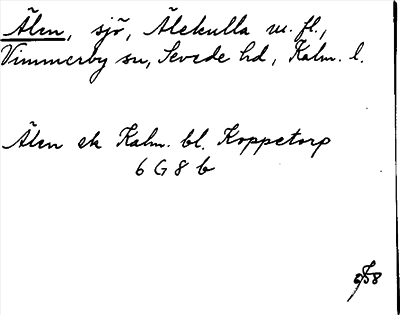 Älen, sjö, Älekulla m. fl.,
Vimmerby sn, Sevede hd, Kalm. l.
Älen ek Kalm. bl. Koppetorp
6 G 8 b